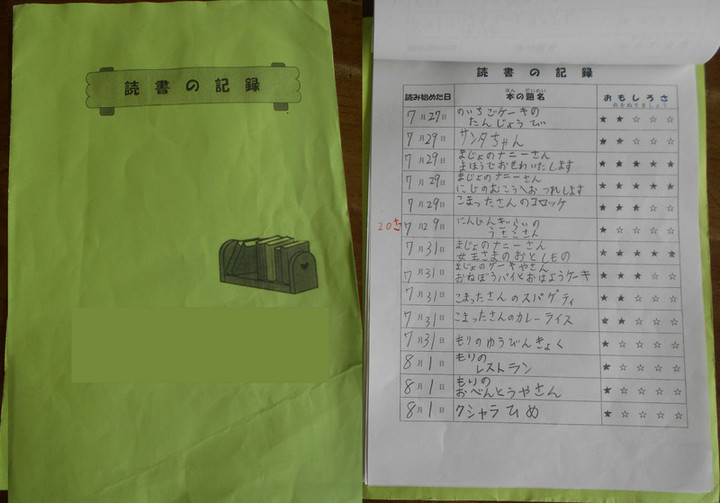 読書の記録
読書の記録
読み始めた日 本の題名 おもしろさ
ほん だいめい
7月27日 のいちごケーキの
たんじょうび ★★☆☆☆
7月29日 サンタちゃん ★★☆☆☆
7月29日 まじょのナニーさん
まほうでおせわいたします ★★★★★
7月29日 まじょのナニーさん
にじのむこうへおつれします ★★★★★
7月29日 こまったさんのコロッケ ★★★☆☆
20さつ
7月29日 にんじんぎらいの
うさこさん ★☆☆☆☆
7月31日 まじょのナニーさん
女王さまのおとしもの ★★★★★
7月31日 まじょのケーキやさん
おねぼうパイとおはようケーキ ★★★☆☆
7月31日 こまったさんのスパゲティ ★★☆☆☆
7月31日 こまったさんのカレーライス ★★☆☆☆
7月31日 もりのゆうびんきょく ★☆☆☆☆
8月1日 もりの
レストラン ★☆☆☆☆
8月1日 もりの
おべんとうやさん ★☆☆☆☆
8月1日 クシャラひめ ★☆☆☆☆